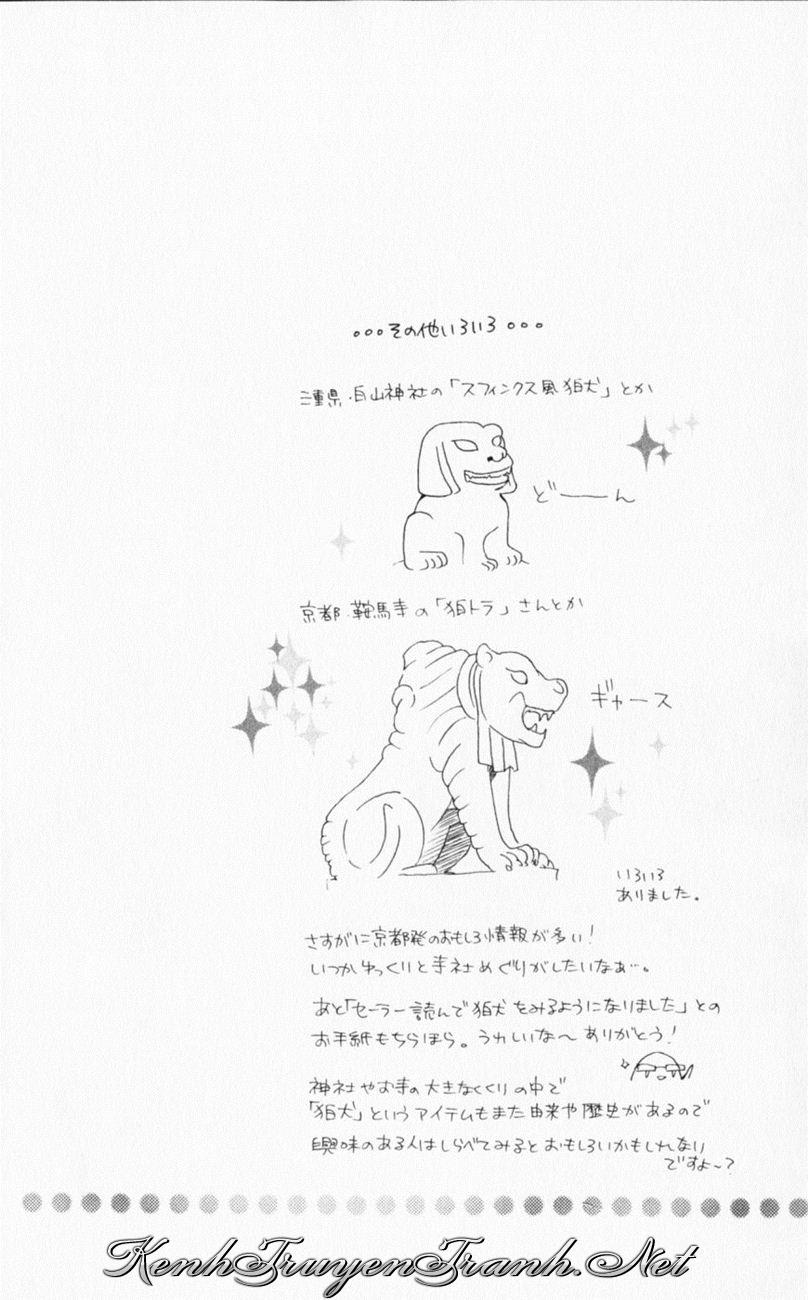 ○○○その他いろいろ○○○
三重県・白山神社の「スフィンクス風狛犬」とか
どーーん
京都・鞍馬寺の「狛トラ」さんとか
ギャース
いろいろ
ありました。
さすがに京都発のおもしろ情報が多い!
いつかゆっくりと寺社めぐりがしたいなぁ…。
あと「セーラー読んで狛犬をみるようになりました」との
お手紙もちらほら。うれしいな〜ありがとう!
神社やお寺の大きなくくりの中で
「狛犬」というアイテムもまた由来や歴史があるので
興味のある人はしらべてみるとおもしろいかもしれない
ですよ〜?
KenhTruyenTranh.Net